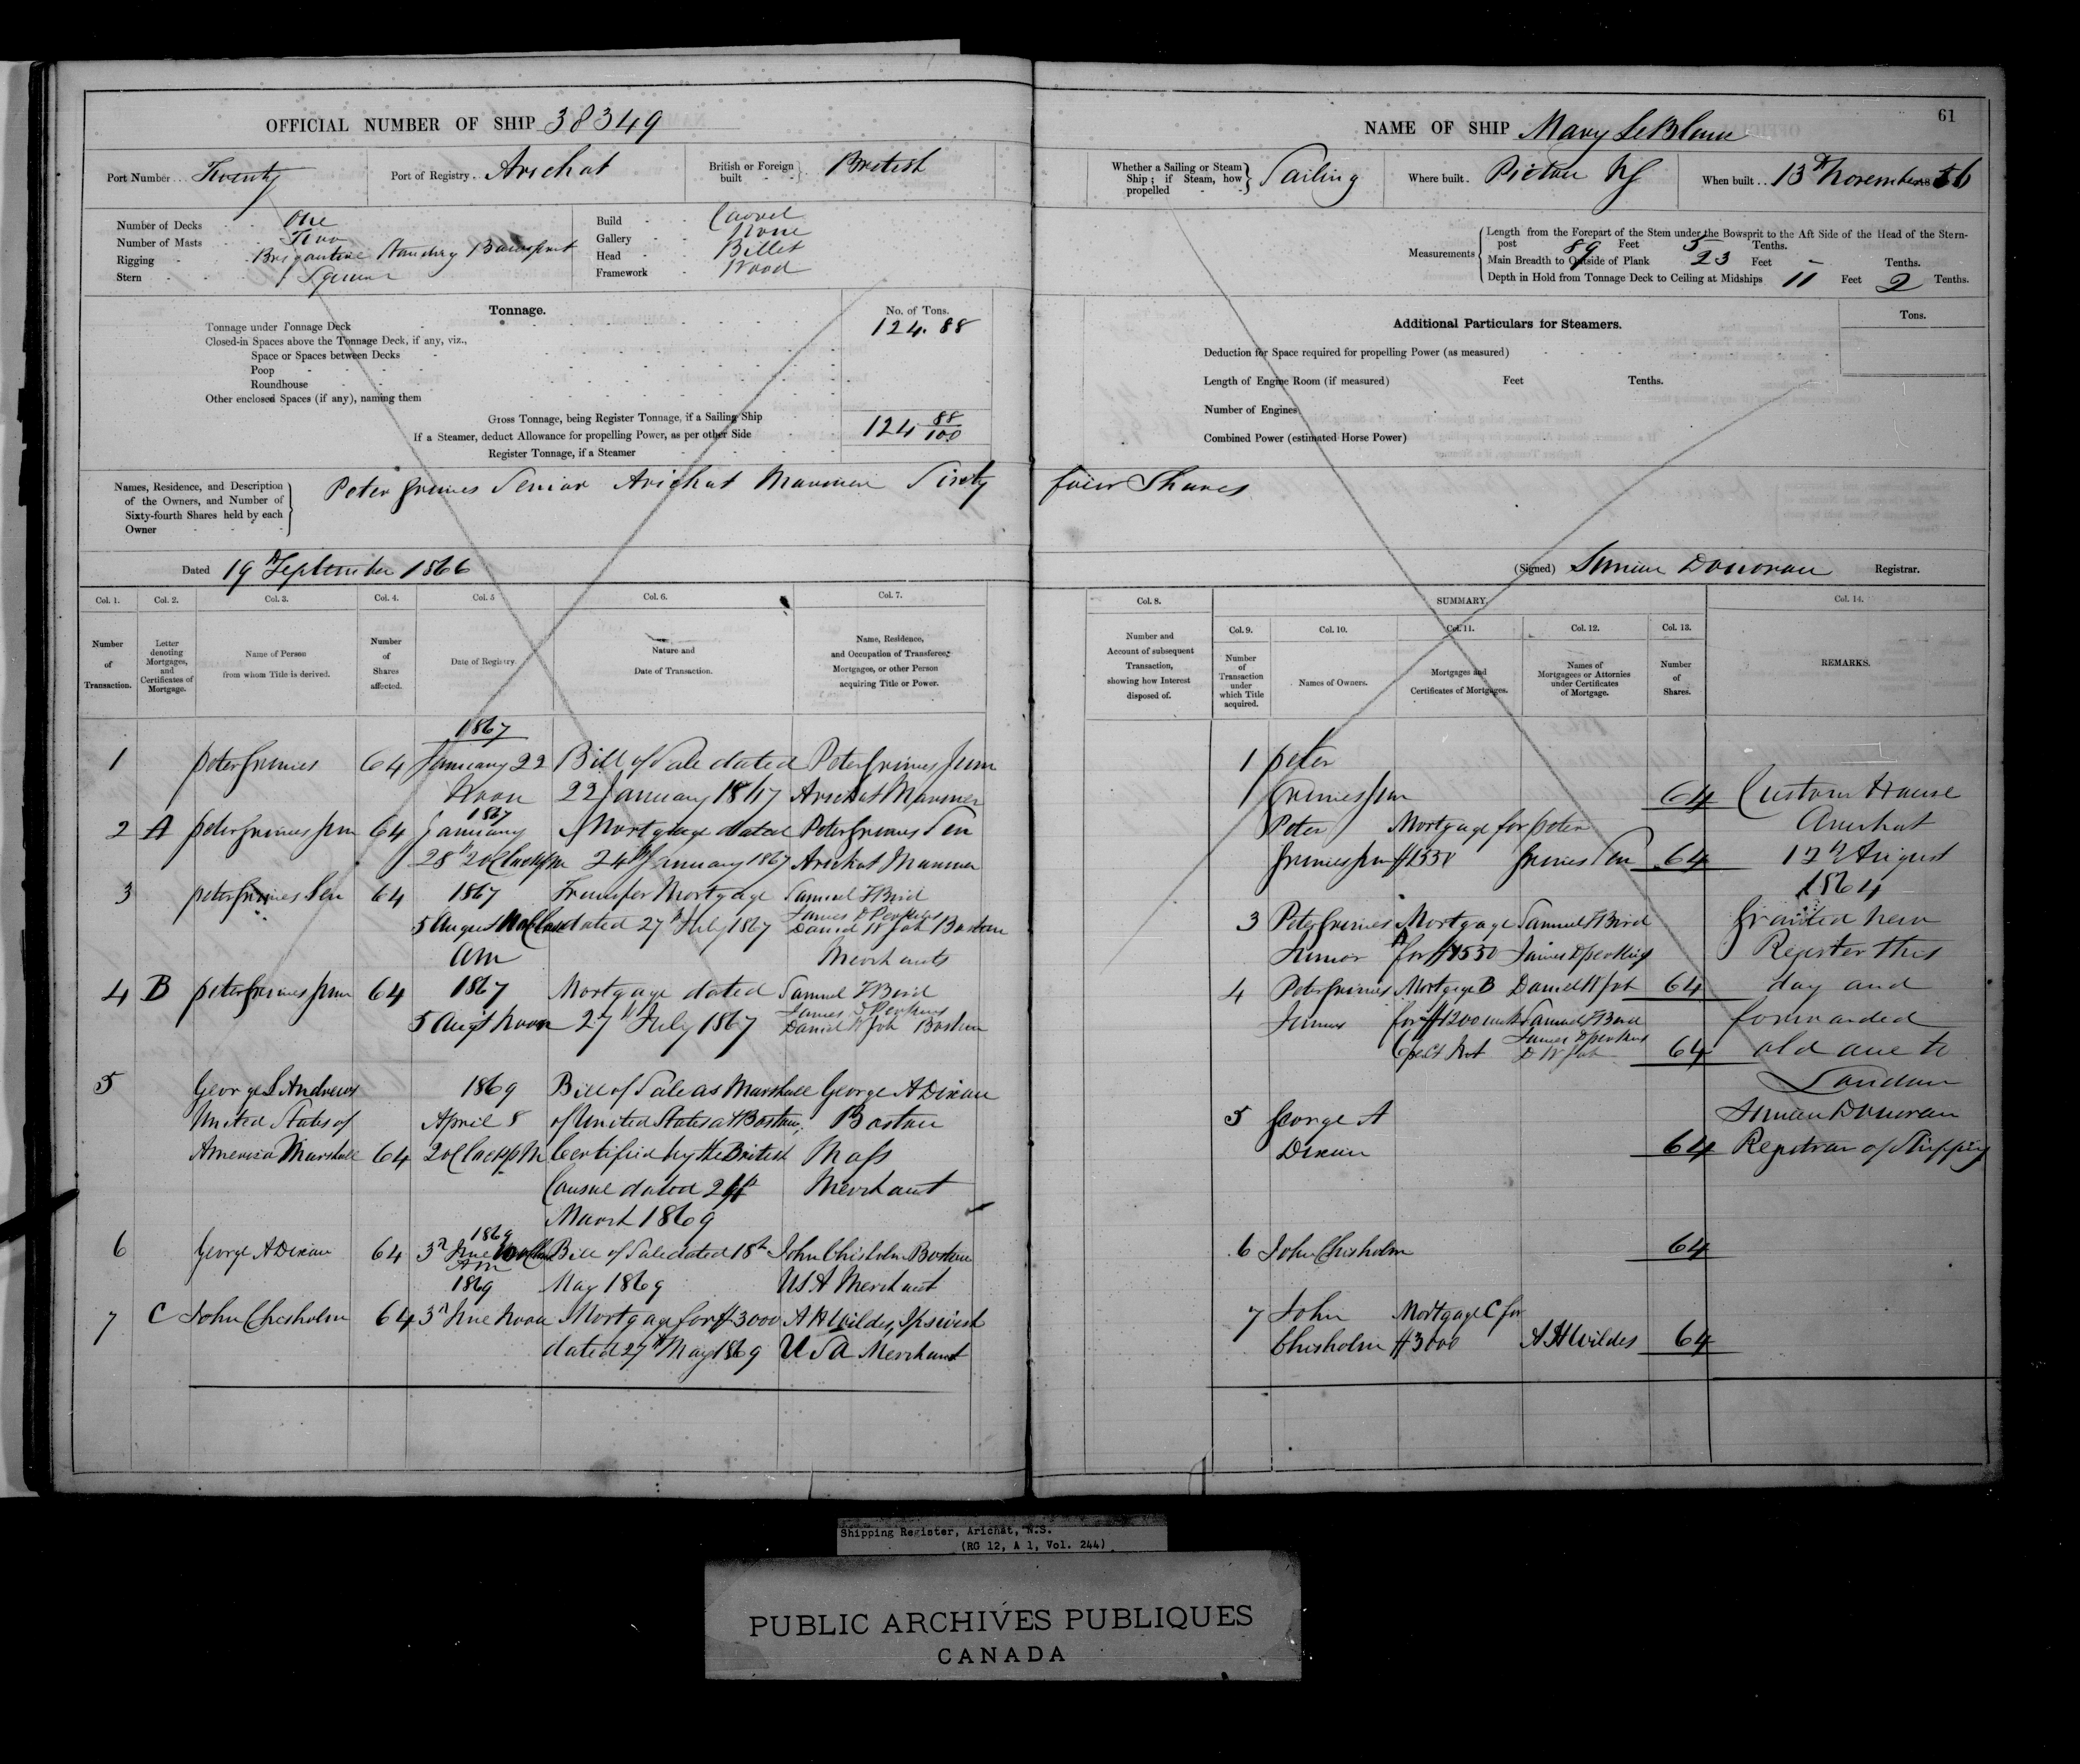 OFFICIAL NUMBER OF SHIP 38349
Port Number Twenty
Port of Registry Arichat
British or Foreign built British
Number of Decks One
Number of Masts Two
Rigging Brigantine Standing Bowsprit
Stern Square
Build Carvel
Gallery None
Head Billet
Framework Wood
Tonnage.
No. of Tons.
Tonnage under Tonnage Deck 124.88
Closed-in Spaces above the Tonnage Deck, if any, viz.,
Space or Spaces between Decks
Poop
Roundhouse
Other enclosed Spaces (if any), naming them
Gross Tonnage, being Register Tonnage, if a Sailing Ship 124 88/100
If a Steamer, deduct Allowance for propelling Power, as per other Side
Register Tonnage, if a Steamer
Names, Residence, and Description
of the Owners, and Number of
Sixty-fourth Shares held by each
Owner
Peter Grimes Senior Arichat Mariner Sixty
Dated 19th September 1866
Col. 1. Col. 2. Col. 3. Col. 4. Col. 5 Col. 6. Col. 7.
Number of Transaction.
Letter denoting Mortgages, and Certificates of Mortgage.
Name of Person from whom Title is derived.
Number of Shares affected.
Date of Registry.
Nature and Date of Transaction.
Name, Residence, and Occupation of Transferee, Mortgagee, or other Person acquiring Title or Power.
1867
1 Peter Grimes 64 January 22 Bill of Sale dated Peter Grimes Junr
Noon 22 January 1867 Arichat Mariner
1867
2 A Peter Grimes Junr 64 January Mortgage dated Peter Grimes Sen
28th 2 oClock pm 24th January 1867 Arichat Mariner
3 Peter Grimes Sen 64 1867 Transfer Mortgage Samuel F Bird
James D Perkins
5 August dated 27th July 1867 Daniel W Job Boston
am Merchants
4 B Peter Grimes Junr 64 1867 Mortgage dated Samuel F Bird
James D Perkins
5 Augt Noon 27th July 1867 Daniel W Job Boston
5 George S Andrews 1869 Bill of Sale as Marshall George A Dixon
United States of April 8 of United States at Boston, Boston
America Marshall 64 2 oClock pm Certified by the British Mass
Consul dated Merchant
March 1869
1869
6 George A Dixon 64 3rd June Bill of Sale dated 18th John Chisholm Boston
Am
1869 May 1869 USA Merchant
7 C John Chisholm 64 3rd June Noon Mortgage for $3000 A H Wildes, Ipswich
dated 27th May 1869 USA Merchant
61
NAME OF SHIP Mary LeBlanc
Whether a Sailing or Steam Ship; if Steam, how propelled Sailing
Where built Pictou NS
When built 13th November 1856
Measurements
Length from the Forepart of the Stem under the Bowsprit to the Aft Side of the Head of the Stern-
post 89 Feet 5 Tenths.
Main Breadth to Outside of Plank 23 Feet - Tenths.
Depth in Hold from Tonnage Deck to Ceiling at Midships 11 Feet 2 Tenths.
Additional Particulars for Steamers.
Tons.
Deduction for Space required for propelling Power (as measured)
Length of Engine Room (if measured) Feet Tenths.
Number of Engines
Combined Power (estimated Horse Power)
four Shares
(Signed) Simion Donovan Registrar.
Col. 8. SUMMARY. Col. 14.
Col. 9. Col. 10. Col. 11. Col. 12. Col. 13.
Number and Account of subsequent Transaction, showing how Interest disposed of.
Number of Transaction under which Title acquired.
Names of Owners.
Mortgages and Certificates of Mortgages.
Names of Mortgagees or Attornies under Certificates of Mortgage.
Number of Shares.
REMARKS.
1 Peter
Grimes Junr 64
Peter Mortgage for Peter
Grimes Junr $1550 Grimes Sen 64
3 Peter Grimes Mortgage Samuel F Bird
Junior A for $1550 James D perkins
4 Peter Grimes Mortgage B Daniel W Job 64
Junior for $1200 Samuel F Bird
James D perkins
D W Job 64
5 George A
Dixon 64
6 John Chisholm 64
7 John Mortgage C for
Chisholm $3000 A H Wildes 64
Custom House
Arichat
17th August
Granted new
Register this
day and
forwarded
old one to
London
Simion Donovan
Registrar of Shipping
Shipping Register, Arichat, N.S.
(RG 12, A 1, Vol. 244)
PUBLIC ARCHIVES PUBLIQUES
CANADA